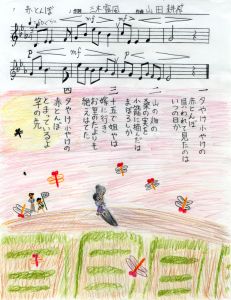 赤とんぼ 作詞 三木露風 作曲 山田耕筰
mf
p mf
p
一 夕やけ小やけの
赤とんぼ
負われて見たのは
いつの日か
二 山の畑の
桑の実を
小籠に摘んだは
まぼろしか
三 十五で姐やは
嫁に行き
お里のたよりも
絶えはてた
四 夕やけ小やけの
赤とんぼ
とまっているよ
竿の先